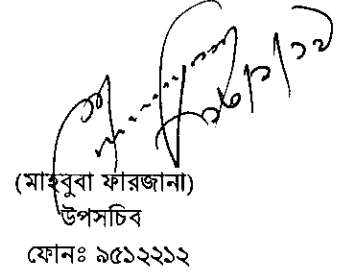 (মাহবুবা ফারজানা)
উপসচিব
ফোনঃ ৯৫১২২১২